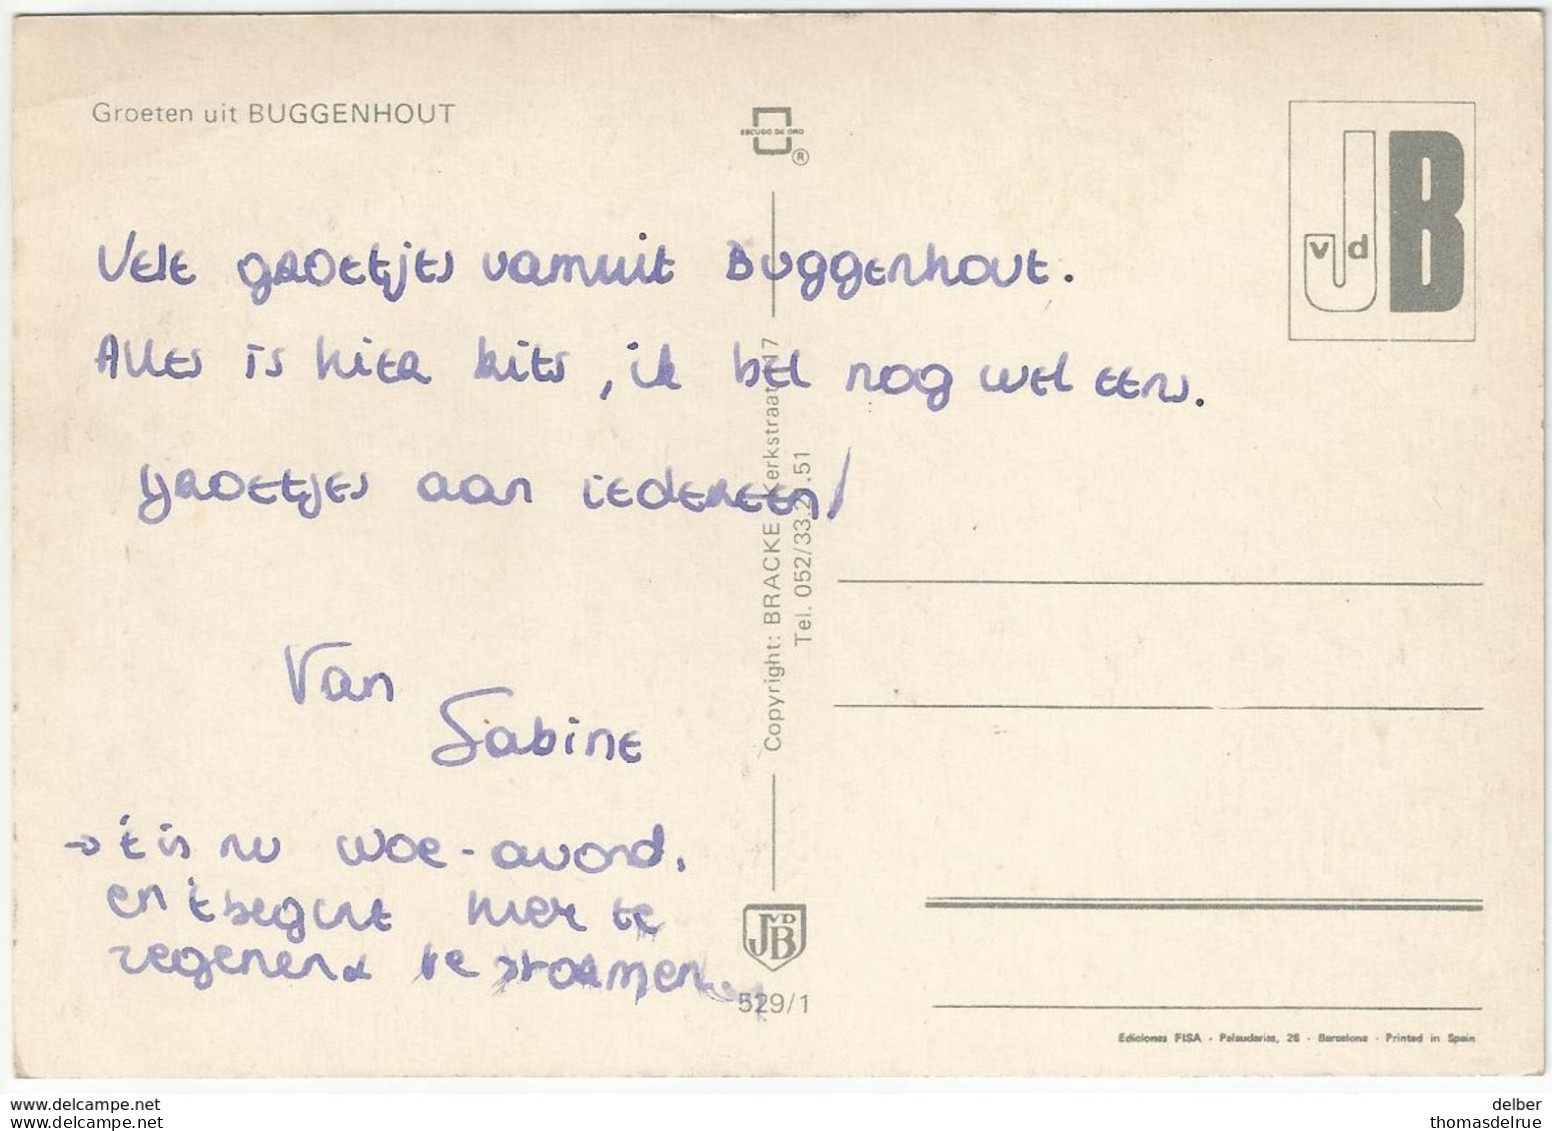 Groeten uit BUGGENHOUT
ESCUDO DE ORO
®
v d
JB
Vele groetjes vanuit Buggenhout.
Alles is hier kits, ik bel nog wel eens.
groetjes aan iedereen!
Van
Sabine
→ 't is nu woe-avond,
en 't begint hier te
regenen & te stormen
Copyright: BRACKE Kerkstraat 17
Tel. 052/33.2 .51
JVDB
529/1
Ediciones FISA - Palaudarias, 26 - Barcelona - Printed in Spain
www.delcampe.net
www.delcampe.net
delber
thomasdelrue